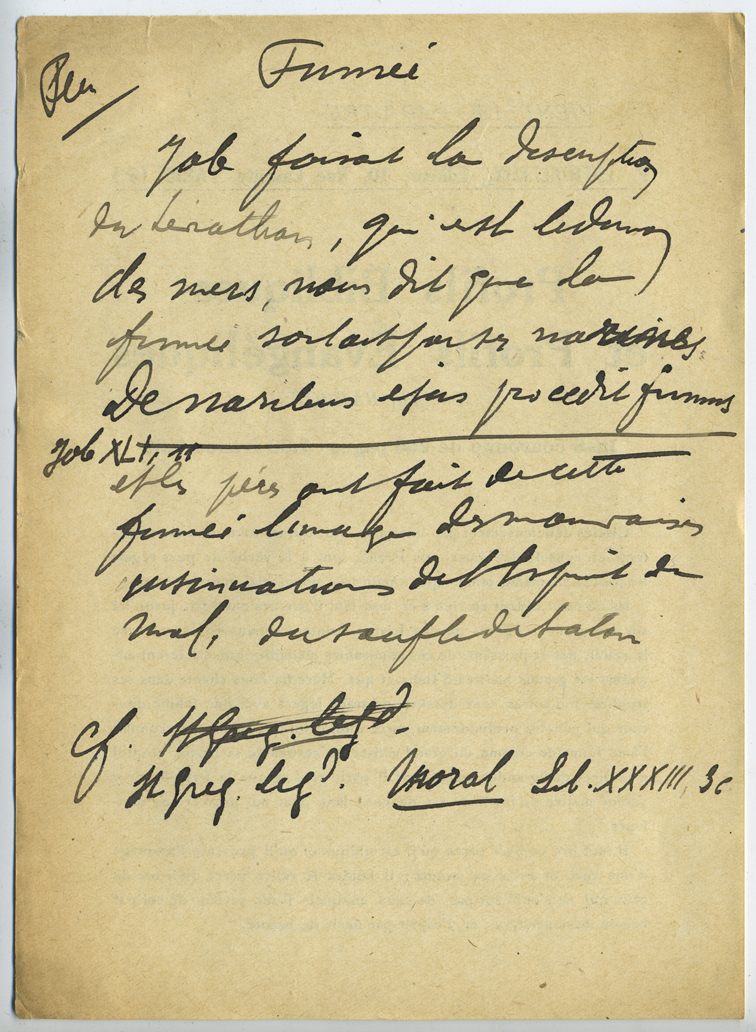 Feu
Fumée
Job faisant la description
du Léviathan, qui est le démon
des mers, nous dit que la
fumée sortait par ses narines
De naribus ejus procedit fumus
Job XLI, 11
et les pères ont fait de cette
fumée l'image des mauvaises
insinuations de l'Esprit du
Mal, du soufle de Satan
cf. St Greg. Legd.
St Greg. Legd. Moral Lib. XXXIII, 3